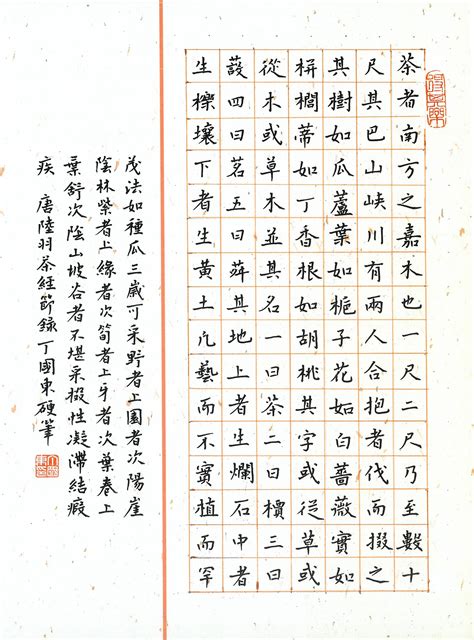 茶者南方之嘉木也一尺二尺乃至數十
尺其巴山峽川有兩人合抱者伐而掇之
其樹如瓜蘆葉如梔子花如白薔薇實如
栟櫚蒂如丁香根如胡桃其字或從草或
從木或草木並其名一曰茶二曰檟三曰
蔎四曰茗五曰荈其地上者生爛石中者
生櫟壤下者生黃土凡藝而不實植而罕
茂法如種瓜三歲可采野者上園者次陽崖
陰林紫者上緣者次筍者上牙者次葉卷上
葉舒次陰山坡谷者不堪采掇性凝滯結瘕
疾 唐陸羽茶經節錄丁國東硬筆